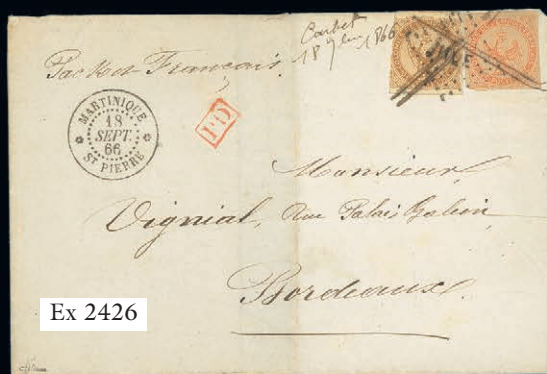 Carbet
18 7bre 1866
Packet Français
MARTINIQUE
18
SEPT.
66
ST PIERRE
PD
Monsieur
Vignial, Rue Palais Galien
Bordeaux
Ex 2426